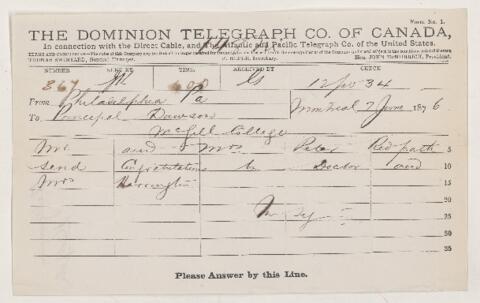 Form No. 1.
THE DOMINION TELEGRAPH CO. OF CANADA,
In connection with the Direct Cable, and the Atlantic and Pacific Telegraph Co. of the United States.
THOMAS SWINYARD, General Manager. Secretary. Hon. JOHN McMURRICH, President.
NUMBER SENT BY TIME RECEIVED BY CHECK
367
From Philadelphia Pa Montreal 7 June 1876
To Principal Dawson
McGill College
Mr and Mrs Peter Redpath 5
send Congratulations to Doctor and 10
Mrs Harrington 15
20
25
30
35
Please Answer by this Line.